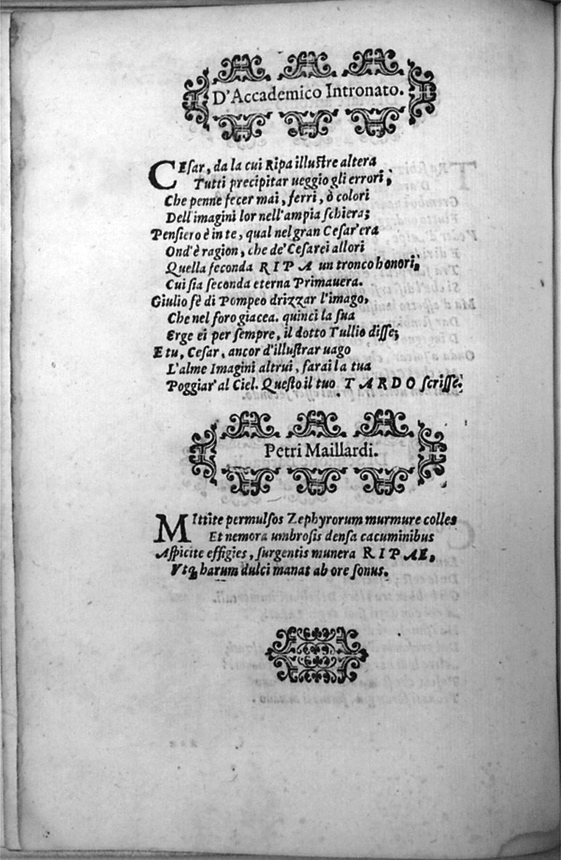 D'Accademico Intronato.
CEsar, da la cui Ripa illustre altera
Tutti precipitar ueggio gli errori;
Che penne fecer mai, ferri, ò colori
Dell'imagini lor nell'ampia schiera;
Pensiero è in te, qual nel gran Cesar'era
Ond'è ragion, che de' Cesarei allori
Quella feconda RIPA un tronco honori;
Cui sia seconda eterna Primauera.
Giulio fè di Pompeo drizzar l'imago,
Che nel foro giacea. quinci la sua
Erge ei per sempre, il dotto Tullio disse;
E tu, Cesar, ancor d'illustrar uago
L'alme Imagini altrui, farai la tua
Poggiar' al Ciel. Questo il tuo TARDO scrisse.
Petri Maillardi.
MIttite permulsos Zephyrorum murmure colles
Et nemora umbrosis densa cacuminibus
Aspicite effigies, surgentis munera RIPAE,
Vtq; harum dulci manat ab ore sonus.